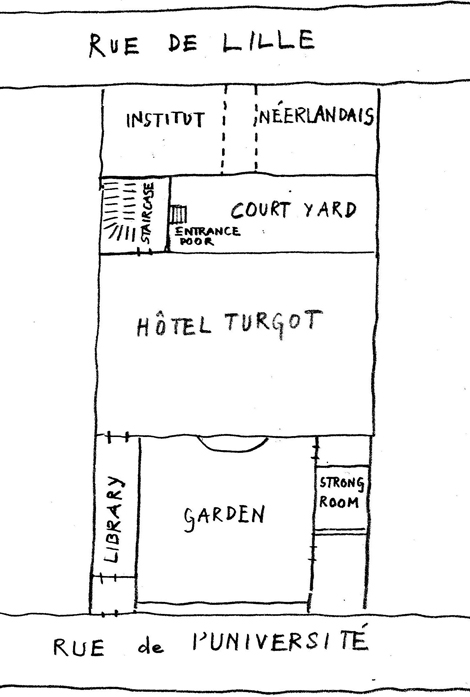 RUE DE LILLE
INSTITUT NÉERLANDAIS
STAIRCASE
COURT YARD
ENTRANCE
DOOR
HÔTEL TURGOT
LIBRARY
GARDEN
STRONG
ROOM
RUE de l'UNIVERSITÉ